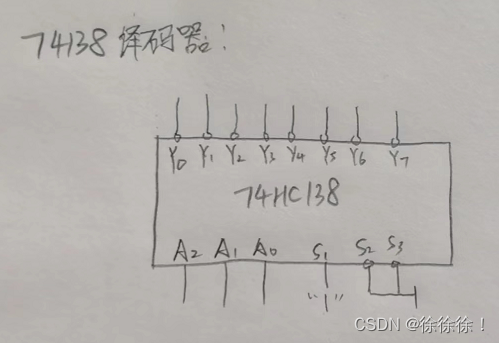 74138译码器：
Y0 Y1 Y2 Y3 Y4 Y5 Y6 Y7
74HC138
A2 A1 A0 S1 S2 S3
"1"
CSDN @徐徐徐！